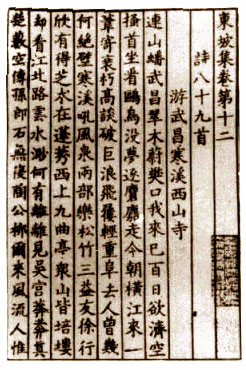 東坡集卷第十二
詩八十九首
游武昌寒溪西山寺
連山蟠武昌翠木蔚樊口我來已百日欲濟空
搔首坐看鷗鳥沒夢逐麏麚走今朝橫江來一
葦寄衰朽高談破巨浪飛屨輕重阜去人曾幾
何絕壁寒溪吼風泉兩部樂松竹三益友徐行
欣有得芝朮在蓬莠西上九曲亭衆山皆培塿
却看江北路雲水渺何有離離見吳宮莽莽真
楚藪空傳孫郎石無復陶公柳爾來風流人惟